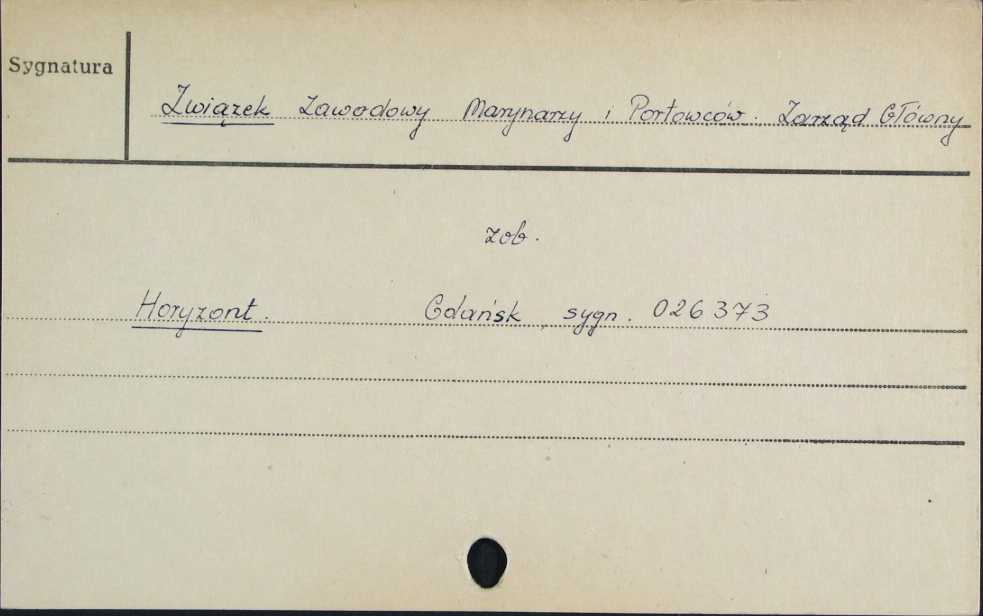 Sygnatura
Związek Zawodowy Marynarzy i Portowców. Zarząd Główny
zob.
Horyzont. Gdańsk sygn. 026373